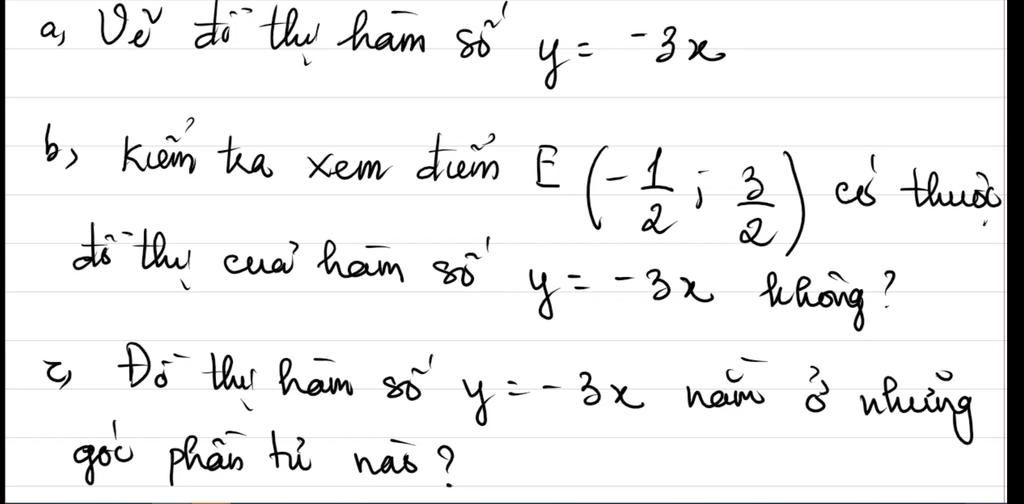 a, Vẽ đồ thị hàm số y = -3x
b, Kiểm tra xem điểm E (-1/2 ; 3/2) có thuộc
đồ thị của hàm số y = -3x không?
c, Đồ thị hàm số y = -3x nằm ở những
góc phần tư nào?